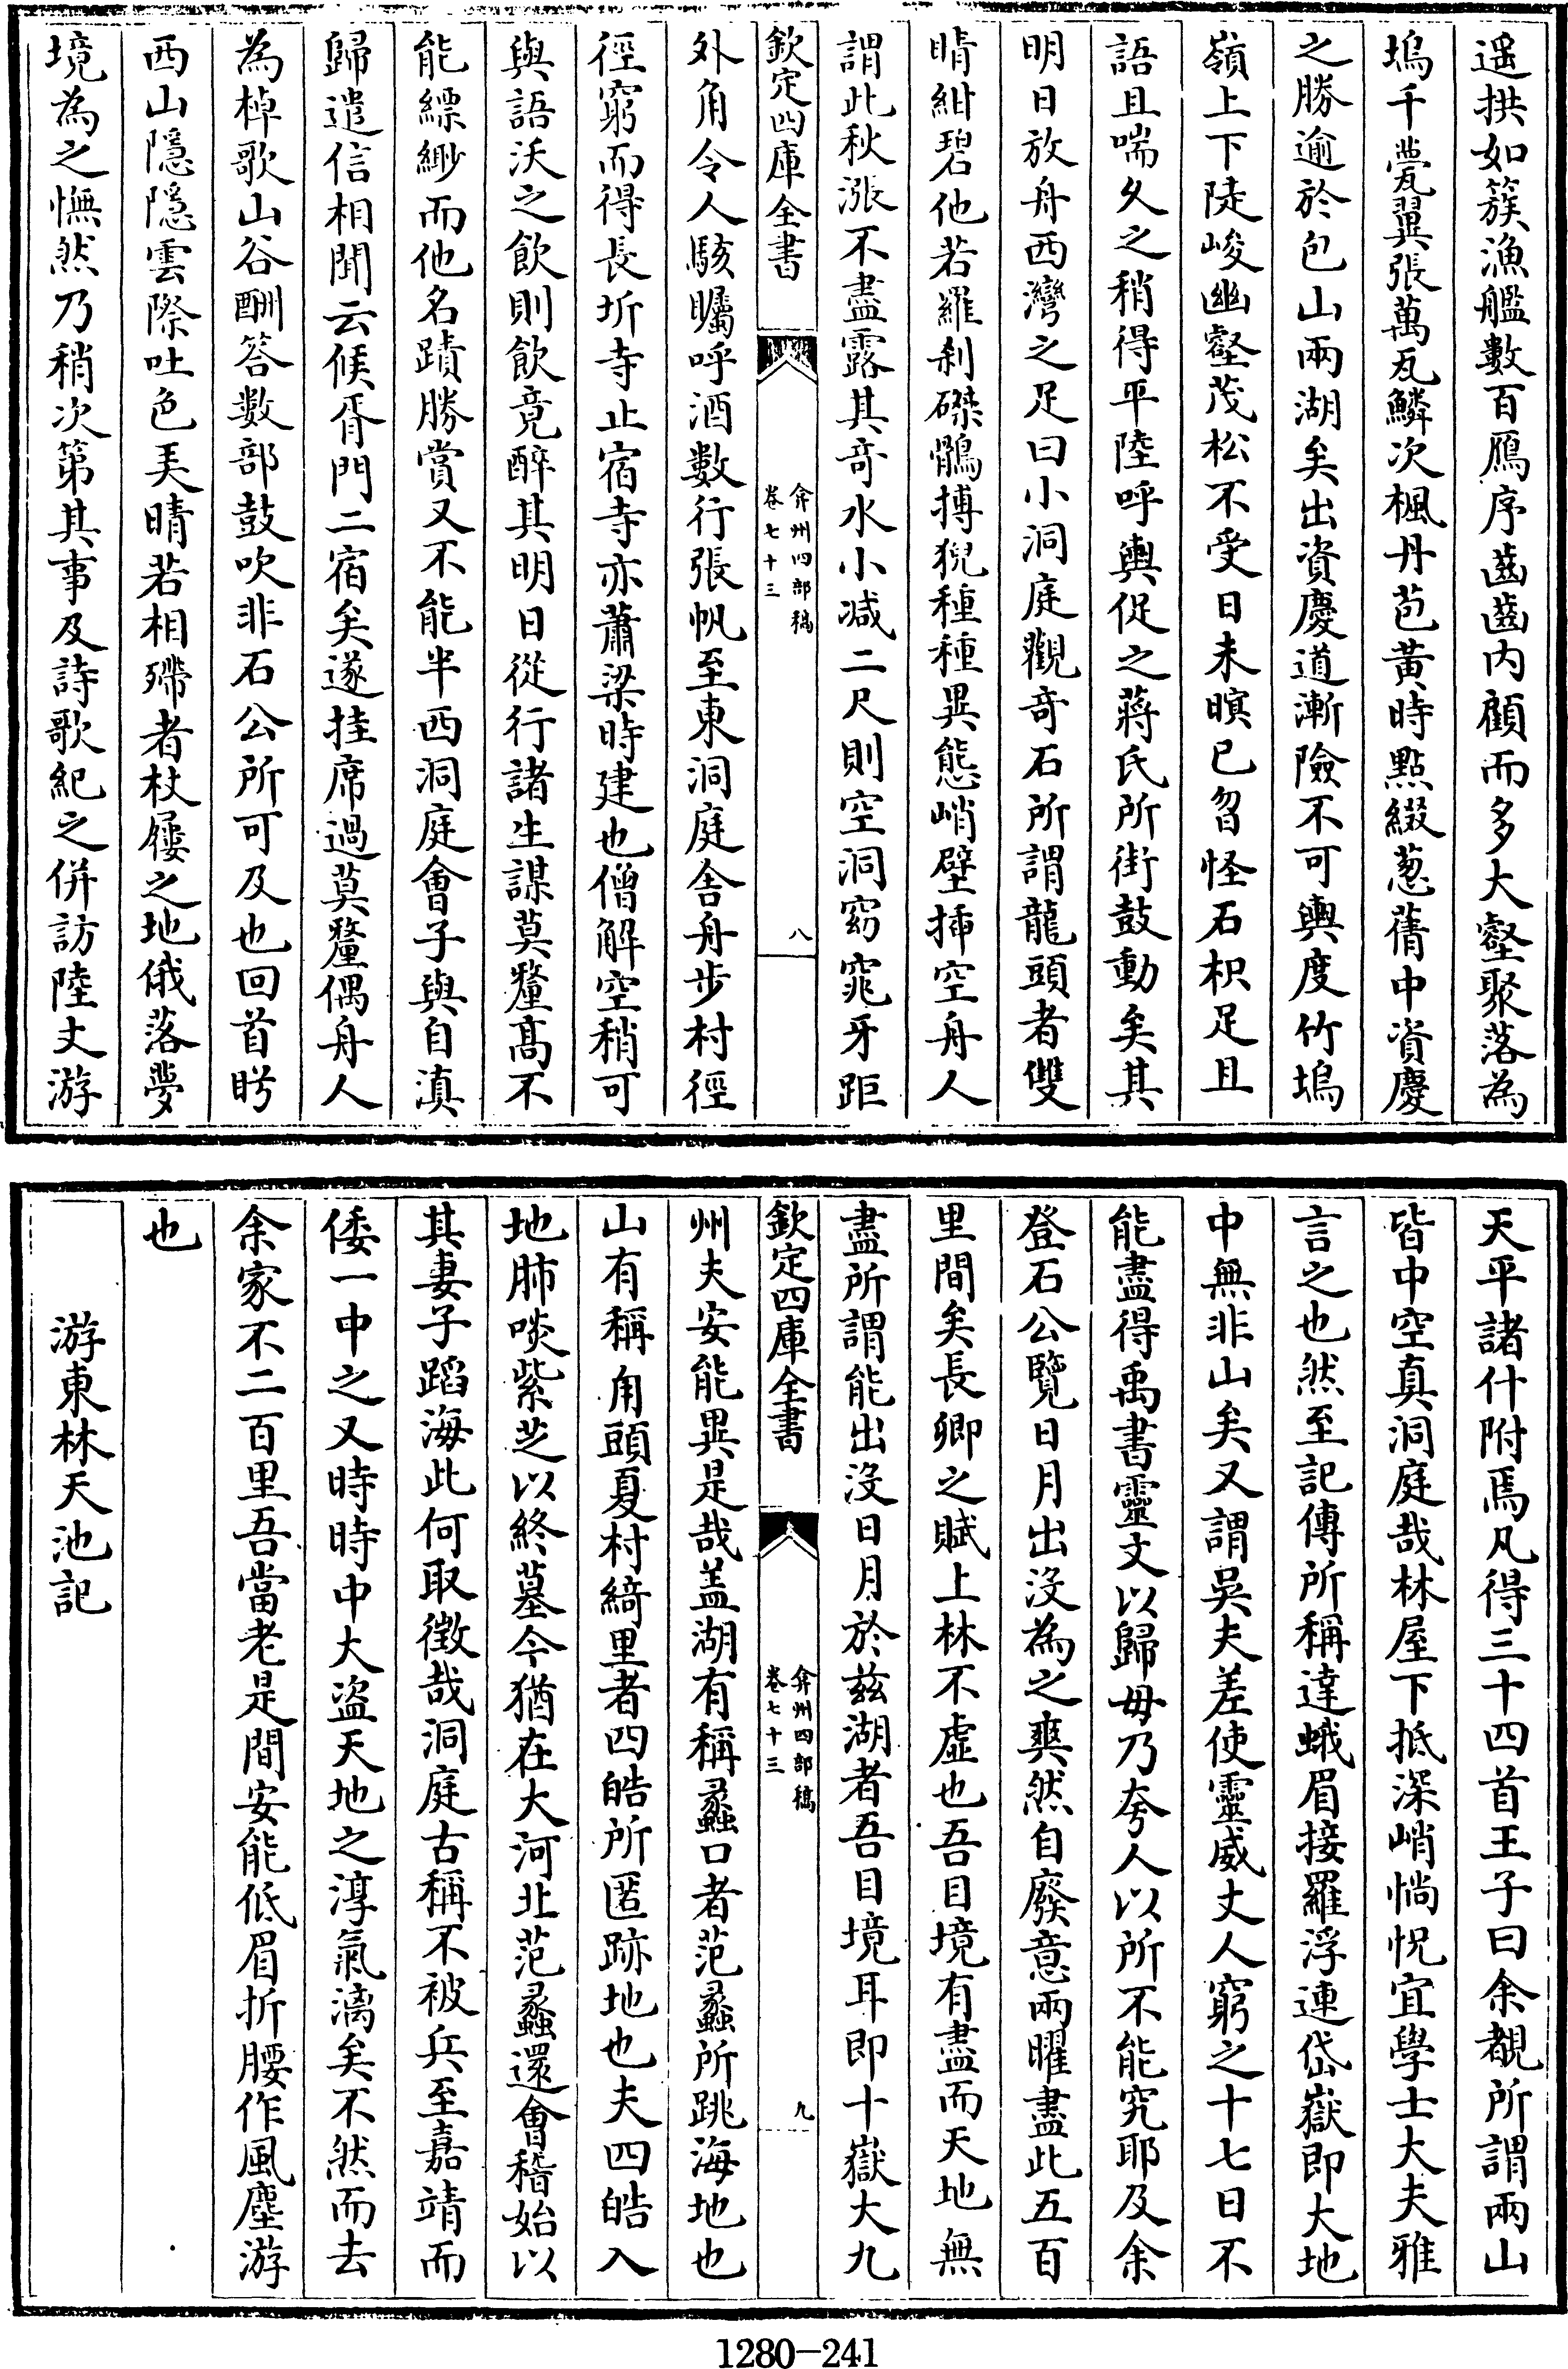 遥拱如簇漁艦數百鴈序齒齒内顧而多大壑聚落為
塢千甍翼張萬瓦鱗次楓丹苞黄時點綴葱蒨中資慶
之勝逾於包山兩湖矣出資慶道漸險不可輿度竹塢
嶺上下陡峻幽壑茂松不受日未暝已曶怪石枳足且
語且喘久之稍得平陸呼輿促之蔣氏所街鼓動矣其
明日放舟西灣之足曰小洞庭觀奇石所謂龍頭者雙
睛紺碧他若羅刹磔鶻搏猊種種異態峭壁挿空舟人
謂此秋漲不盡露其奇水小减二尺則空洞窈窕牙距
欽定四庫全書
弇州四部稿
卷七十三
八
外角令人駭矚呼酒數行張帆至東洞庭舎舟步村徑
徑窮而得長圻寺止宿寺亦蕭梁時建也僧解空稍可
與語沃之飲則飲竟醉其明日從行諸生謀莫釐髙不
能縹緲而他名蹟勝賞又不能半西洞庭會子與自滇
歸遣信相聞云候胥門二宿矣遂挂席過莫釐偶舟人
為棹歌山谷酬答数部鼓吹非石公所可及也回首眄
西山隱隱雲際吐色芙晴若相殢者杖屨之地俄落夢
境為之憮然乃稍次第其事及詩歌紀之併訪陸丈游
天平諸什附焉凡得三十四首王子曰余覩所謂兩山
皆中空真洞庭哉林屋下抵深峭惝怳宜學士大夫雅
言之也然至記傳所稱達峨眉接羅浮連岱嶽即大地
中無非山矣又謂吳夫差使靈威丈人窮之十七日不
能盡得禹書靈文以歸毋乃夸人以所不能究耶及余
登石公覽日月出没為之爽然自廢意兩曜盡此五百
里間矣長卿之賦上林不虚也吾目境有盡而天地無
盡所謂能出没日月於兹湖者吾目境耳即十嶽大九
欽定四庫全書
弇州四部稿
卷七十三
九
州夫安能異是哉盖湖有稱蠡口者范蠡所跳海地也
山有稱角頭夏村綺里者四皓所匿跡地也夫四皓入
地肺啖紫芝以終墓今猶在大河北范蠡還會稽始以
其妻子蹈海此何取徴哉洞庭古稱不被兵至嘉靖而
倭一中之又時時中大盜天地之淳氣漓矣不然而去
余家不二百里吾當老是間安能低眉折腰作風塵游
也
游東林天池記
1280-241